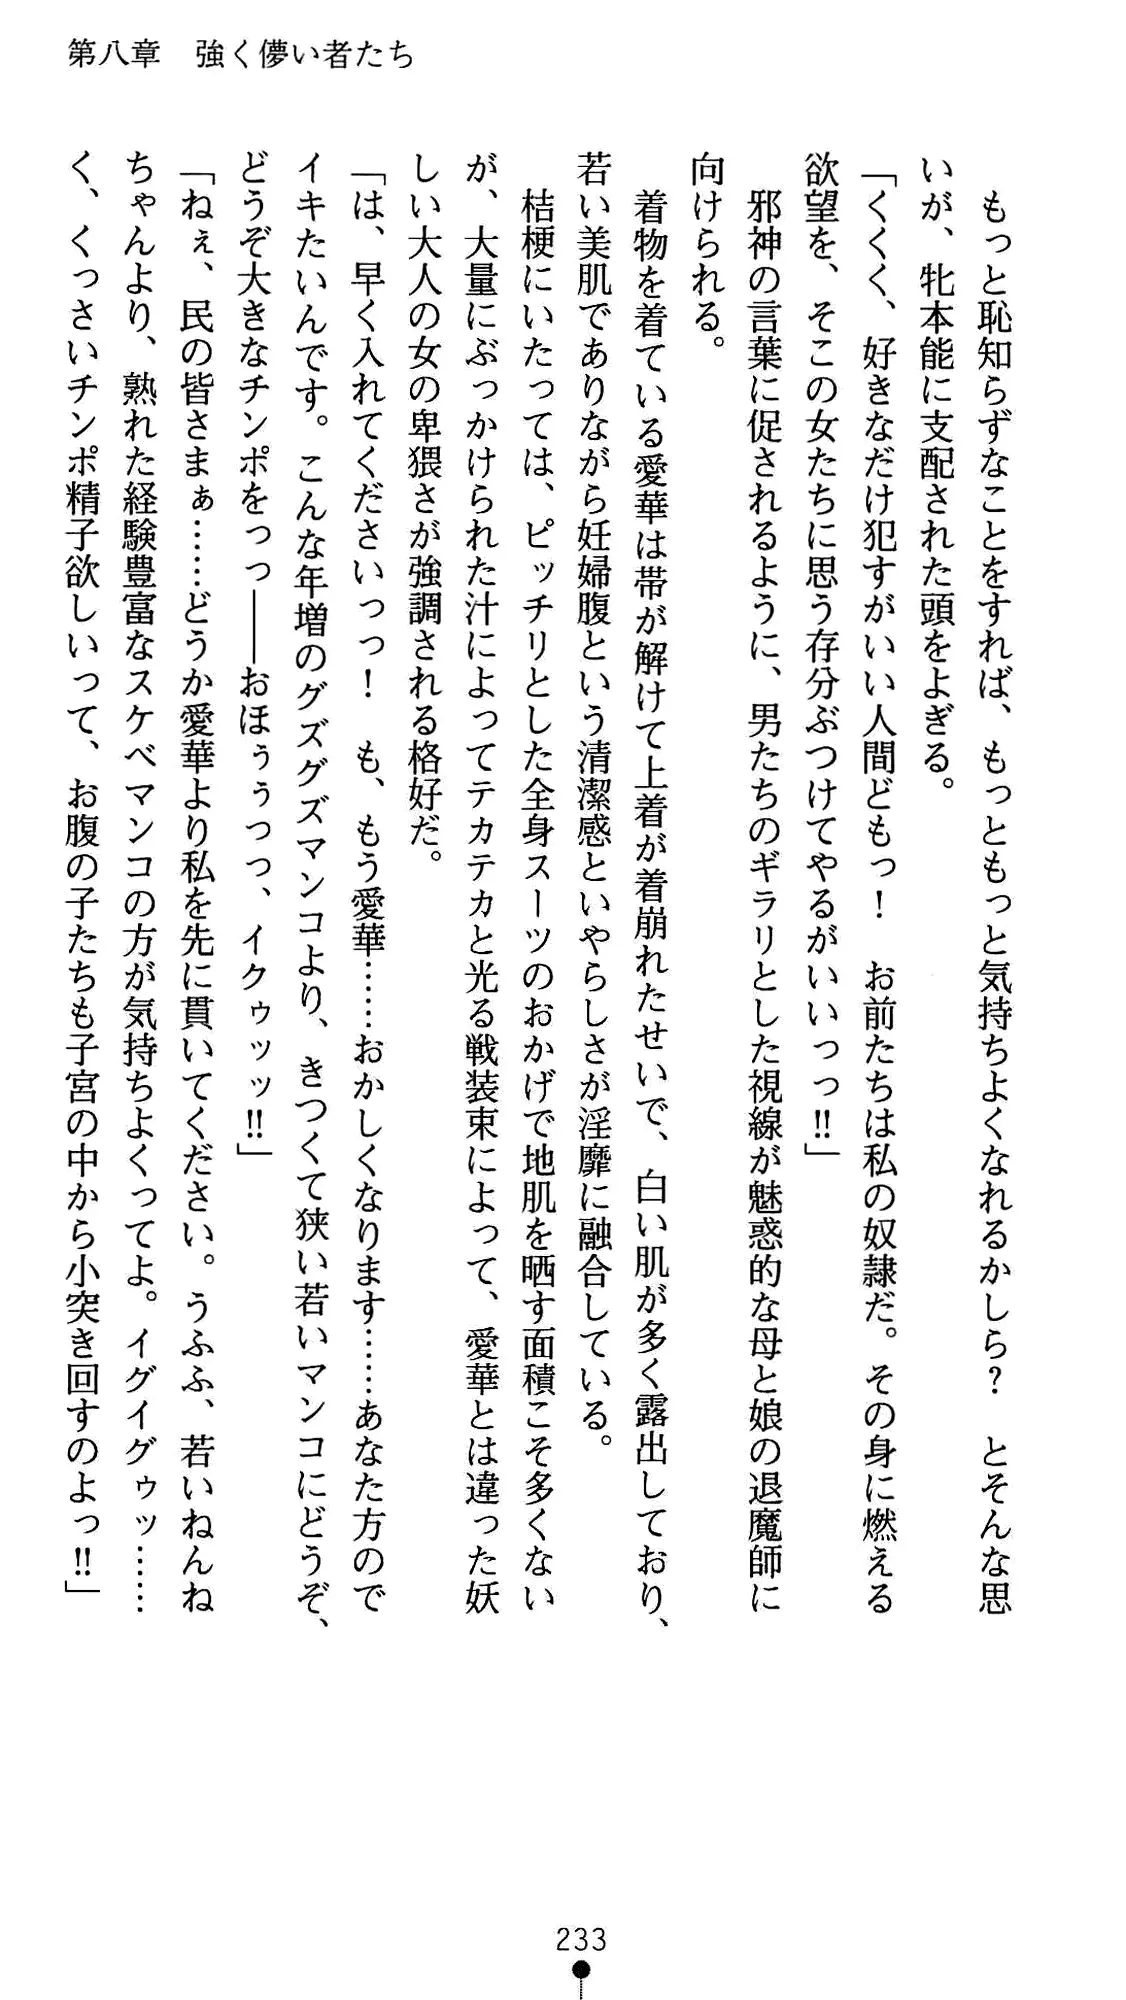 第八章　強く儚い者たち
　もっと恥知らずなことをすれば、もっともっと気持ちよくなれるかしら？　とそんな思
いが、牝本能に支配された頭をよぎる。
「くくく、好きなだけ犯すがいい人間どもっ！　お前たちは私の奴隷だ。その身に燃える
欲望を、そこの女たちに思う存分ぶつけてやるがいいっっ‼」
　邪神の言葉に促されるように、男たちのギラリとした視線が魅惑的な母と娘の退魔師に
向けられる。
　着物を着ている愛華は帯が解けて上着が着崩れたせいで、白い肌が多く露出しており、
若い美肌でありながら妊婦腹という清潔感といやらしさが淫靡に融合している。
　桔梗にいたっては、ピッチリとした全身スーツのおかげで地肌を晒す面積こそ多くない
が、大量にぶっかけられた汁によってテカテカと光る戦装束によって、愛華とは違った妖
しい大人の女の卑猥さが強調される格好だ。
「は、早く入れてくださいっっ！　も、もう愛華……おかしくなります……あなた方ので
イキたいんです。こんな年増のグズグズマンコより、きつくて狭い若いマンコにどうぞ、
どうぞ大きなチンポをっっ――おほぅぅっっ、イクゥッッ‼」
「ねぇ、民の皆さまぁ……どうか愛華より私を先に貫いてください。うふふ、若いねんね
ちゃんより、熟れた経験豊富なスケベマンコの方が気持ちよくってよ。イグイグゥッ……
く、くっさいチンポ精子欲しいって、お腹の子たちも子宮の中から小突き回すのよっ‼」
233